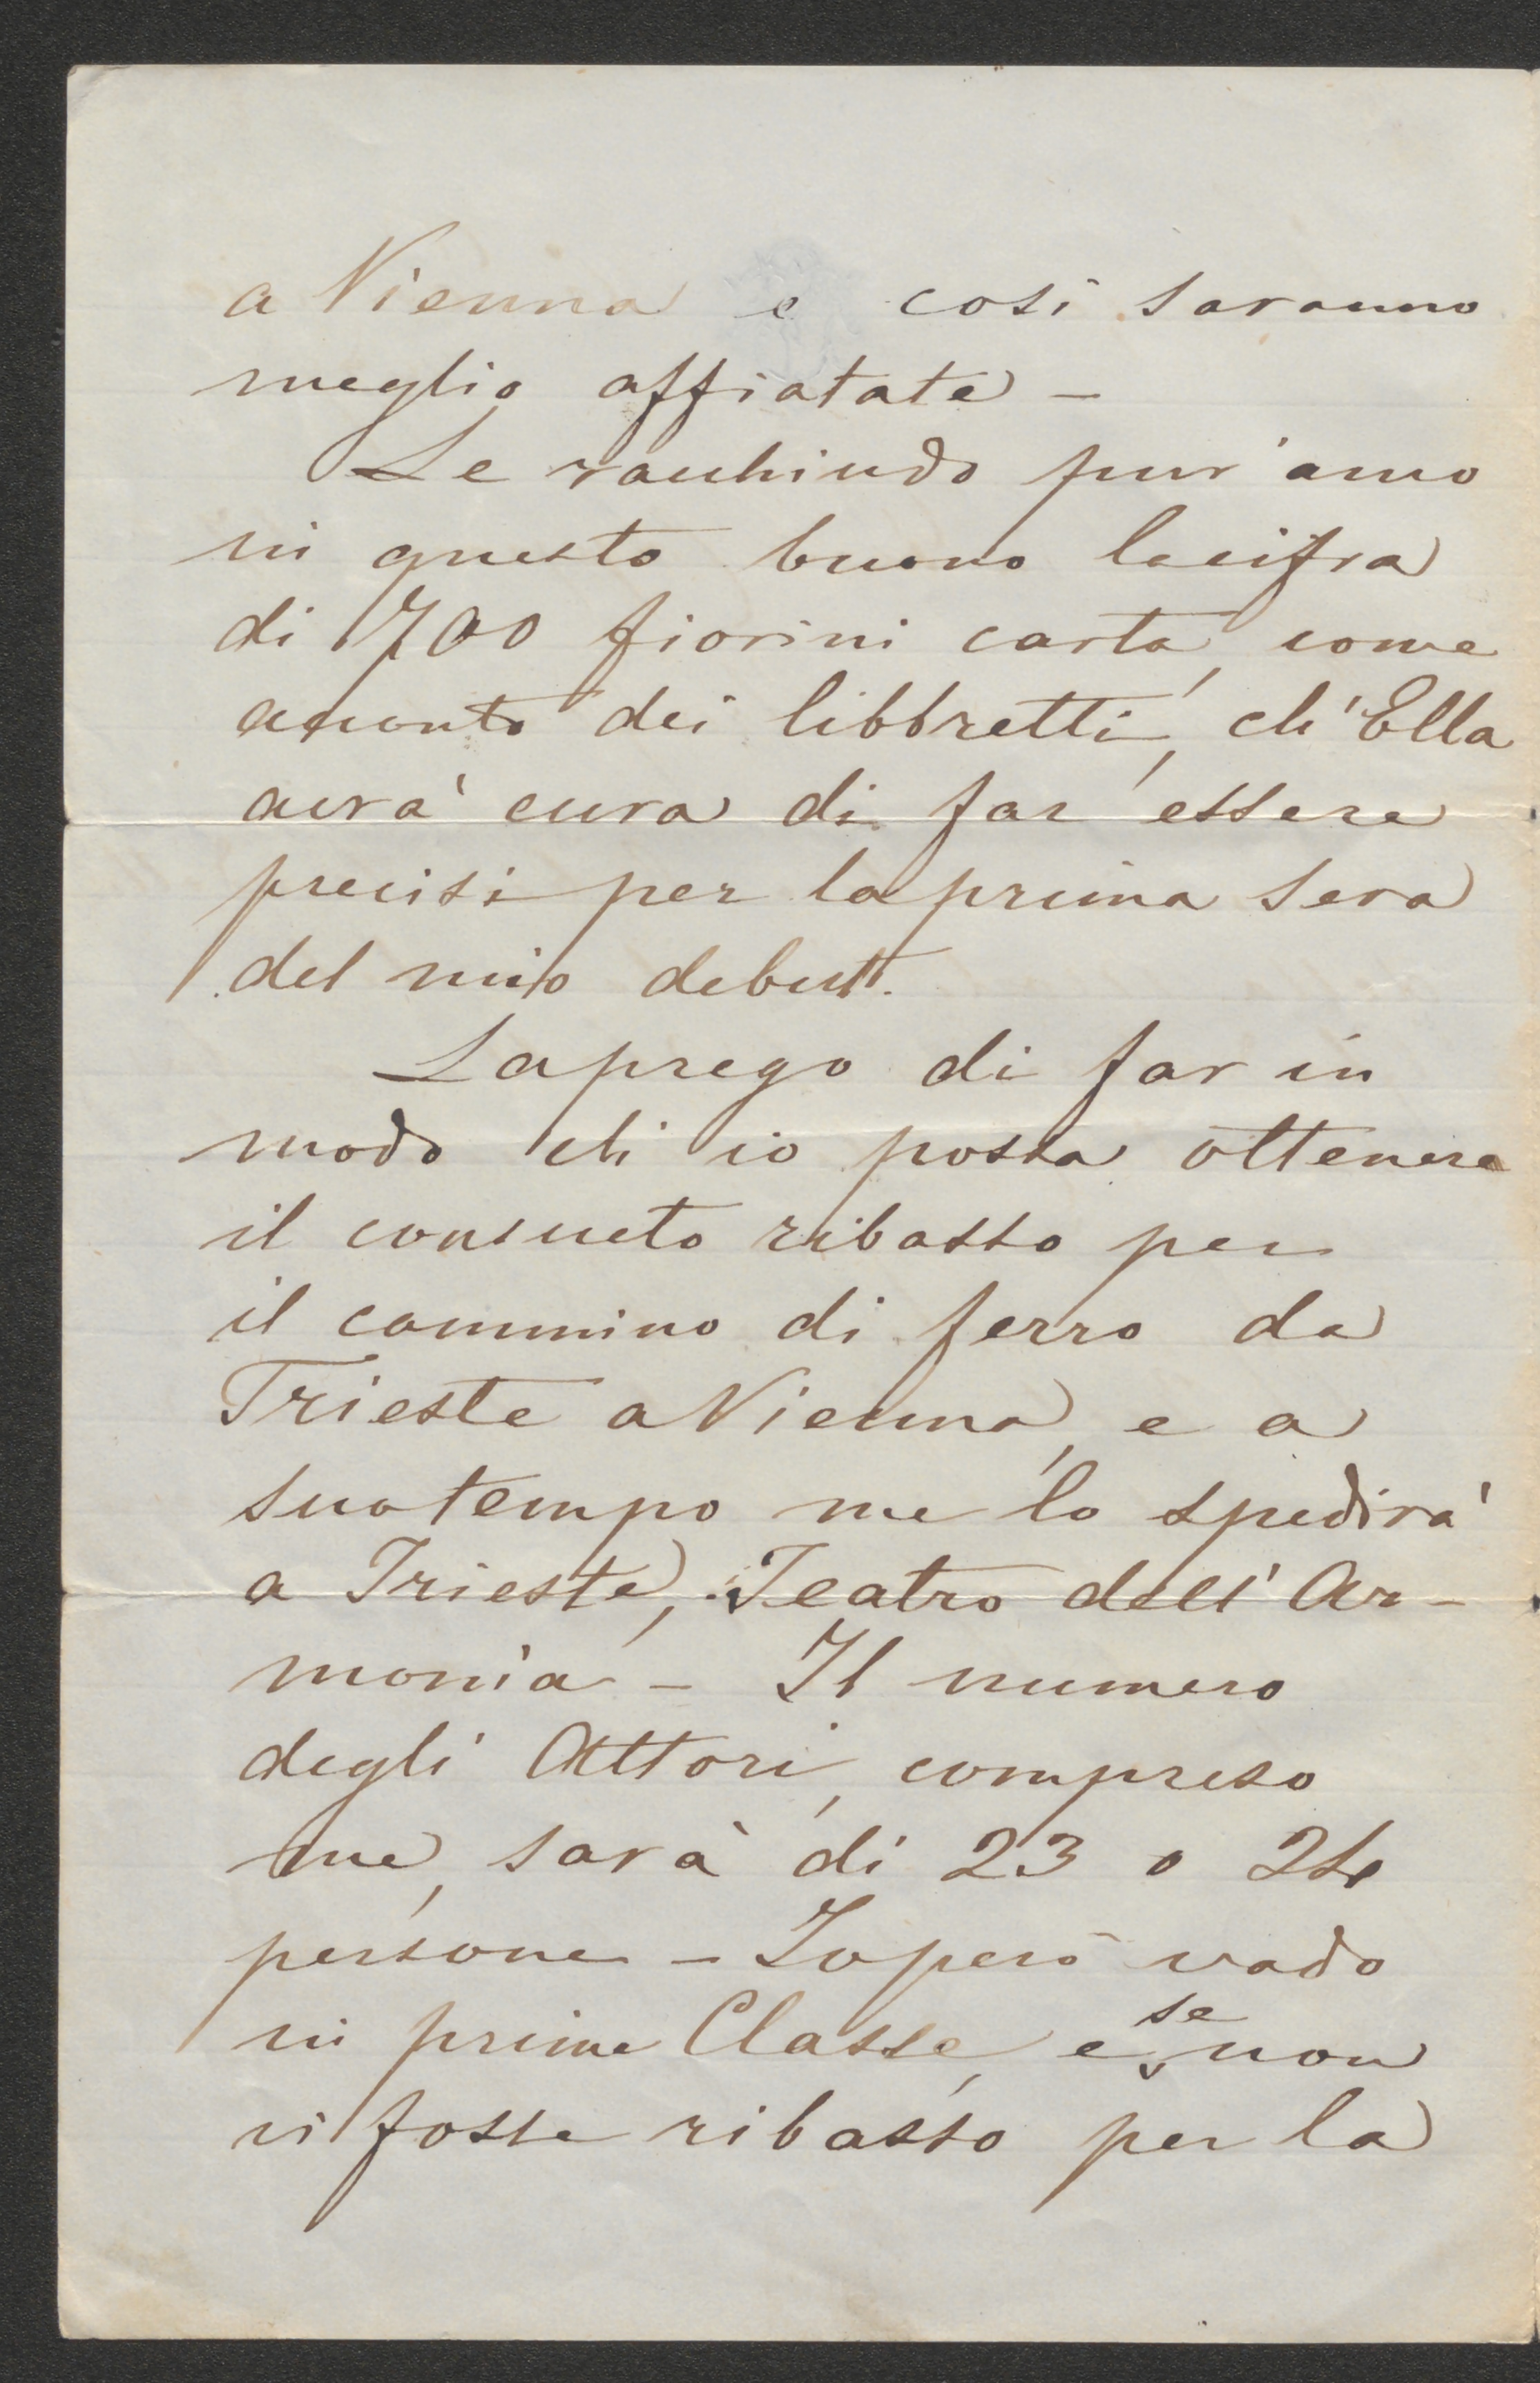 a Vienna e così saranno
meglio affiatate -
Le racchiudo pur'anco
in questo buono la cifra
di 700 fiorini carta, come
acconto dei libbretti, ch'Ella
avrà cura di far essere
precisi per la prima sera
del mio debutt.
La prego di far in
modo ch'io possa ottenere
il consueto ribasso per
il cammino di ferro da
Trieste a Vienna, e a
suo tempo me lo spedirà
a Trieste, Teatro dell'Ar-
monia - Il numero
degli Attori, compreso
me, sarà di 23 o 24
persone - Io però vado
in prima Classe, e se non
vi fosse ribasso per la